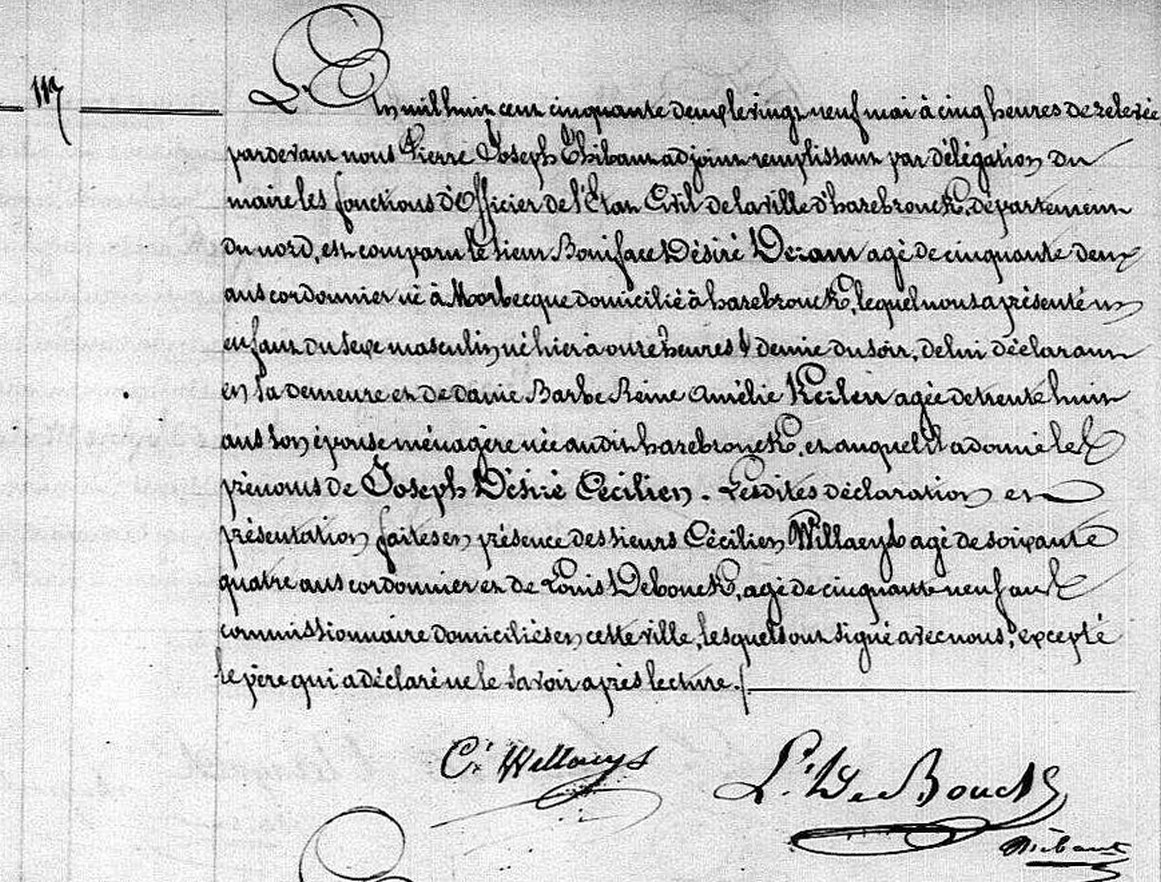 117
L'an mil huit cent cinquante deux le vingt neuf mai à cinq heures de relevée
pardevant nous Pierre Joseph Thibaut adjoint remplissant par délégation du
maire les fonctions d'Officier de l'Etat Civil de la ville d'hazebrouck, département
du nord, est comparu le sieur Boniface Désiré Dezam agé de cinquante deux
ans cordonnier né à Morbecque domicilié à hazebrouck, lequel nous a présenté un
enfant du sexe masculin, né hier à onze heures & demie du soir, de lui déclarant
en sa demeure et de dame Barbe Reine Amélie Keilen agée de trente huit
ans son épouse ménagère née audit hazebrouck, et auquel il a donné les
prénoms de Joseph Désiré Cécilien. Lesdites déclaration et
présentation faites en présence des sieurs Cécilien Willaeys agé de soixante
quatre ans cordonnier et de Louis Debouck, agé de cinquante neuf ans
commissionnaire domiciliés en cette ville, lesquels ont signé avec nous, excepté
le père qui a déclaré ne le savoir après lecture./.
C. Willaeys
L. De Bouck
Thibaut